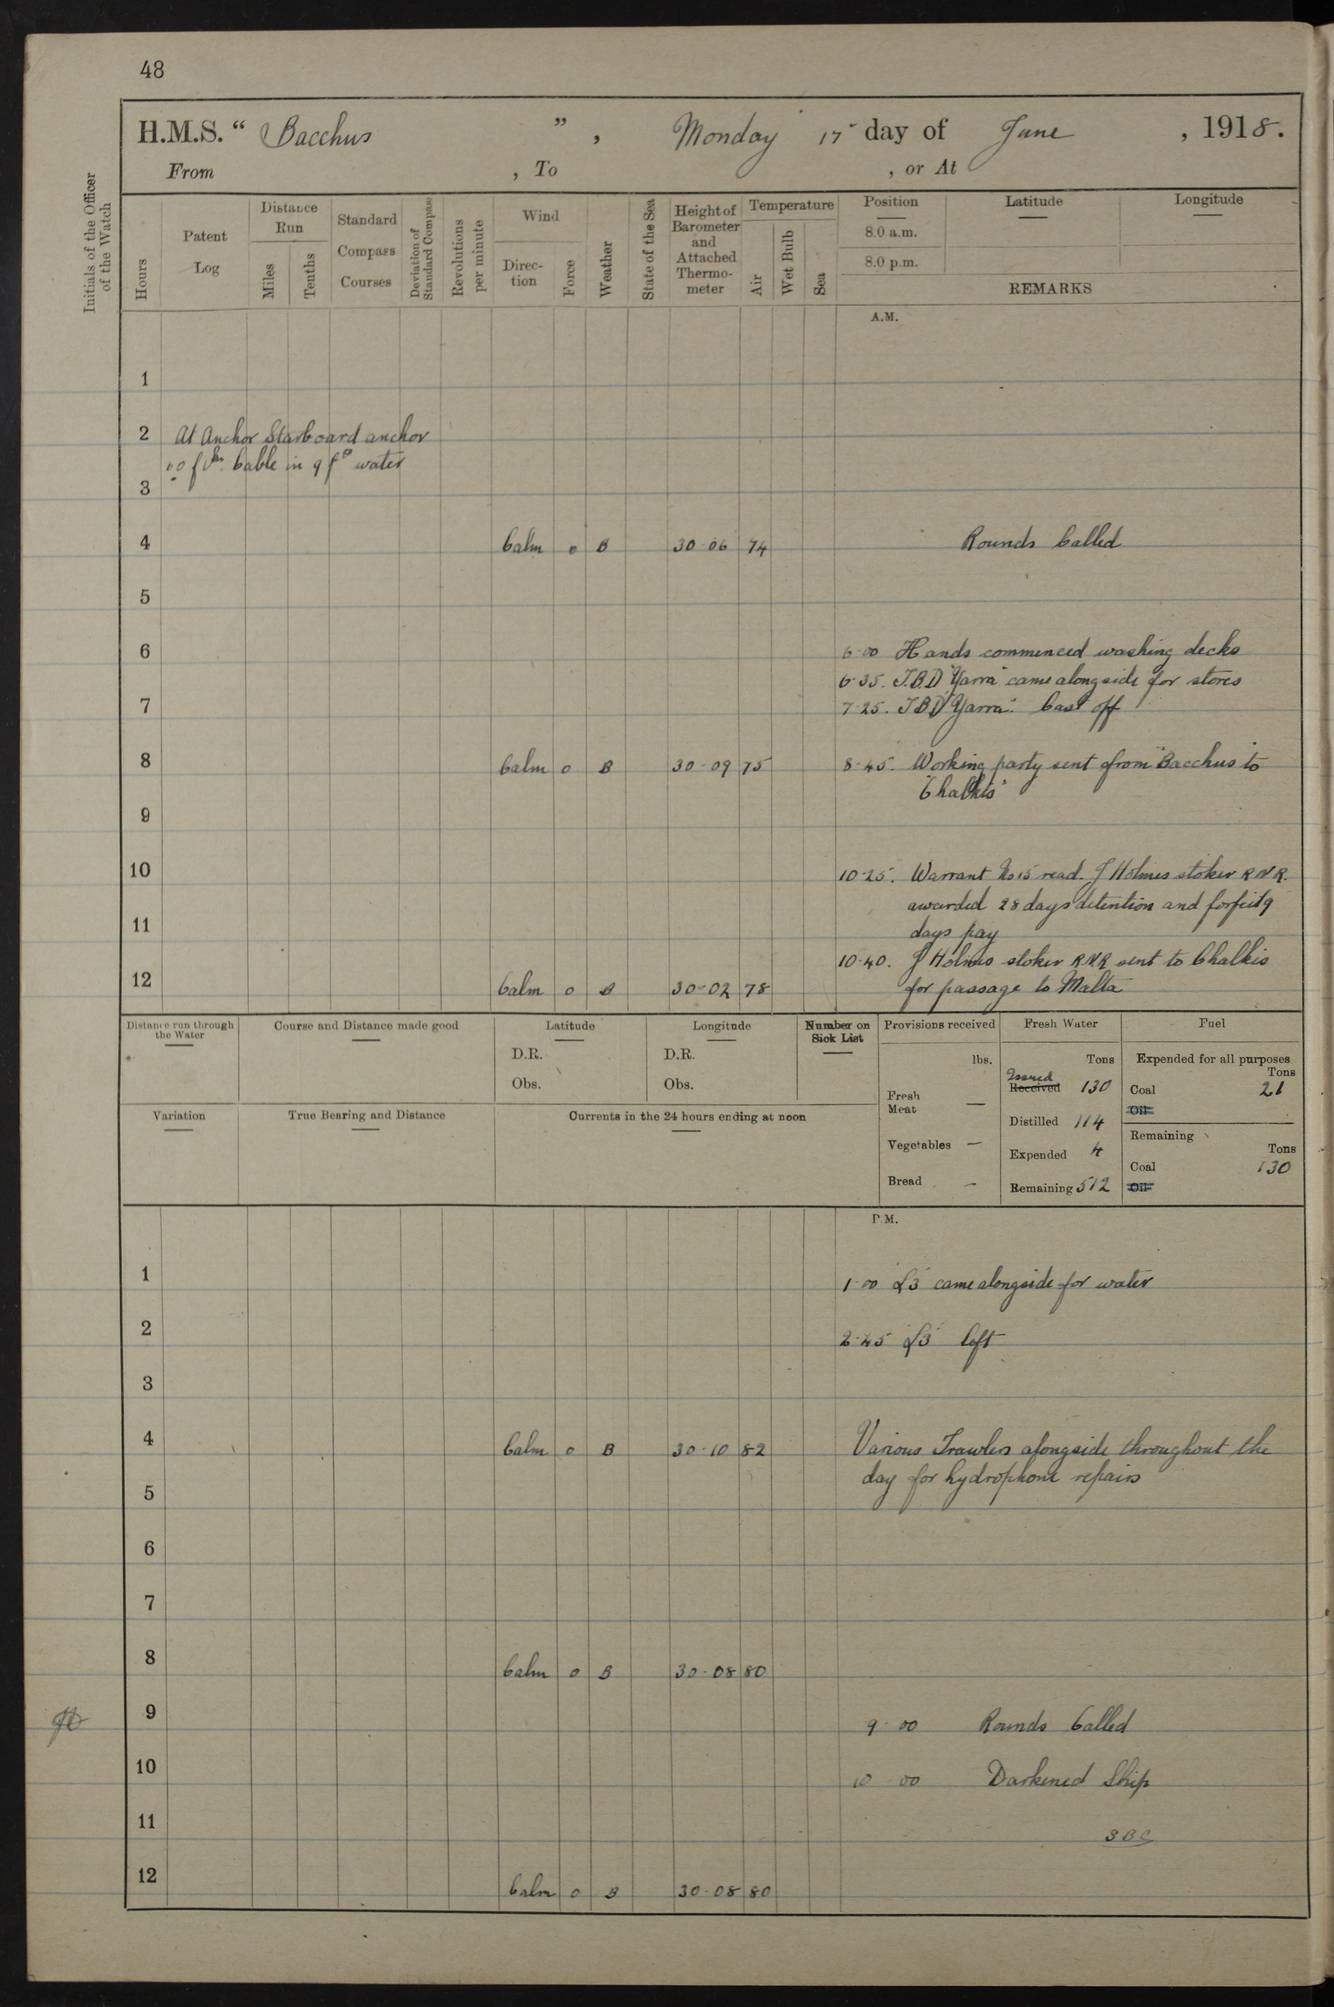 48
H.M.S. “ Bacchus ” , Monday 17 day of June , 1918.
From , To , or At
Initials of the Officer of the Watch
Hours
Patent Log
Distance Run
Miles
Tenths
Standard Compass Courses
Deviation of Standard Compass
Revolutions per minute
Wind
Direc-tion
Force
Weather
State of the Sea
Height of Barometer and Attached Thermo-meter
Temperature
Air
Wet Bulb
Sea
Position Latitude Longitude
8.0 a.m.
8.0 p.m.
REMARKS
A.M.
1
2 At Anchor Starboard anchor
fms. Cable in 9 fms water
3
4 Calm 0 B 30·06 74 Rounds Called
5
6 6·00 Hands commenced washing decks
6·35. T.B.D "Yarra" came alongside for stores
7 7·25. T.B.D "Yarra". Cast off
8 Calm 0 B 30·09 75 8·45. Working party sent from "Bacchus" to
"Chalkis"
9
10 10·25. Warrant No 15 read. J Holmes stoker R.N.R.
awarded 28 days detention and forfeit 9
11 days pay
10·40. J Holmes stoker R.N.R sent to Chalkis
12 Calm 0 B 30·02 78 for passage to Malta
Distance run through the Water
Course and Distance made good
Latitude
D.R.
Obs.
Longitude
D.R.
Obs.
Number on Sick List
Provisions received
lbs.
Fresh Meat —
Vegetables —
Bread —
Fresh Water
Tons
Issued
Received 130
Distilled 114
Expended 4
Remaining 512
Fuel
Expended for all purposes
Tons
Coal 21
Oil
Remaining
Tons
Coal 130
Oil
Variation
True Bearing and Distance
Currents in the 24 hours ending at noon
P.M.
1 1·00 "L3" came alongside for water
2 2·45 "L3" left
3
4 Calm 0 B 30·10 82 Various Trawlers alongside throughout the
day for hydrophone repairs
5
6
7
8 Calm 0 B 30·08 80
9 9 00 Rounds Called
10 10 00 Darkened Ship
11 SBC
12 Calm 0 B 30·08 80